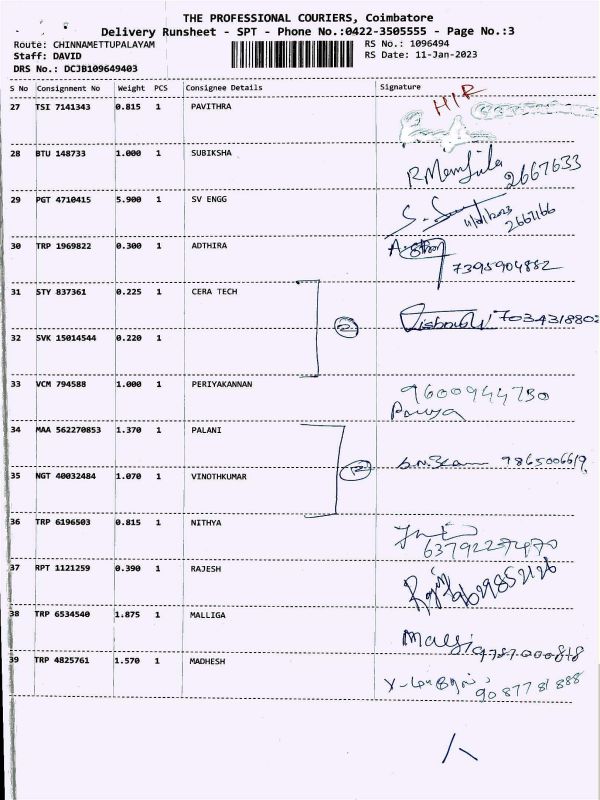 THE PROFESSIONAL COURIERS, Coimbatore
Delivery Runsheet - SPT - Phone No.:0422-3505555 - Page No.:3
Route: CHINNAMETTUPALAYAM
Staff: DAVID
DRS No.: DCJB109649403
RS No.: 1096494
RS Date: 11-Jan-2023
S No Consignment No Weight PCS Consignee Details Signature
27 TSI 7141343 0.815 1 PAVITHRA
HIR
28 BTU 148733 1.000 1 SUBIKSHA
2667633
29 PGT 4710415 5.900 1 SV ENGG
11/01/2023
2667166
30 TRP 1969822 0.300 1 ADTHIRA
7395904882
31 STY 837361 0.225 1 CERA TECH
2 7034318802
32 SVK 15014544 0.220 1
33 VCM 794588 1.000 1 PERIYAKANNAN
9600944730
34 MAA 562270853 1.370 1 PALANI
2 9865006619
35 NGT 40032484 1.070 1 VINOTHKUMAR
36 TRP 6196503 0.815 1 NITHYA
6379227470
37 RPT 1121259 0.390 1 RAJESH
38 TRP 6534540 1.875 1 MALLIGA
9787000818
39 TRP 4825761 1.570 1 MADHESH
9087781888